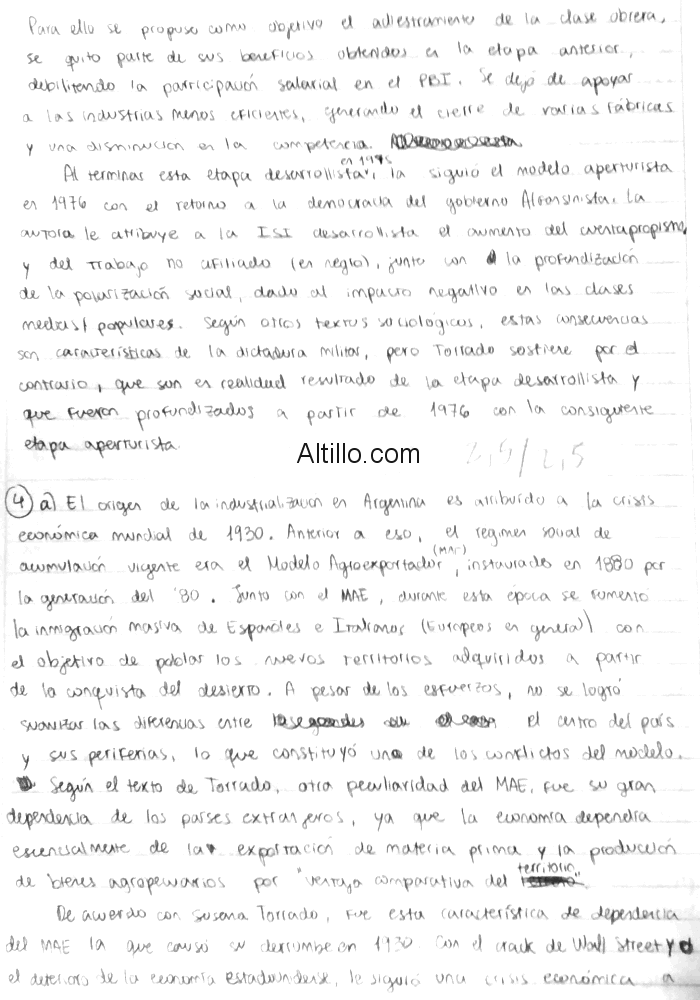 Para ello se propuso como objetivo el adiestramiento de la clase obrera,
se quito parte de sus beneficios obtenidos en la etapa anterior,
debilitando la participación salarial en el PBI. Se dejó de apoyar
a las industrias menos eficientes, generando el cierre de varias fábricas
y una disminucion en la competencia.
Al terminar esta etapa desarrollista en 1975, la siguió el modelo aperturista
en 1976 con el retorno a la democracia del gobierno Alfonsinista. La
autora le atribuye a la ISI desarrollista el aumento del cuentapropismo,
y del trabajo no afiliado (en negro), junto con la profundización
de la polarización social, dado al impacto negativo en las clases
medias/populares. Según otros textos sociológicos, estas consecuencias
son características de la dictadura militar, pero Torrado sostiene por el
contrario, que son en realidad resultado de la etapa desarrollista y
que fueron profundizados a partir de 1976 con la consiguiente
etapa aperturista.
Altillo.com
2,5/2,5
4 a) El origen de la industrialización en Argentina es atribuido a la crisis
económica mundial de 1930. Anterior a eso, el regimen social de
acumulación vigente era el Modelo Agroexportador (MAE), instaurado en 1880 por
la generación del '80. Junto con el MAE, durante esta época se fomentó
la inmigración masiva de Españoles e Italianos (Europeos en general) con
el objetivo de poblar los nuevos territorios adquiridos a partir
de la conquista del desierto. A pesar de los esfuerzos, no se logró
suavizar las diferencias entre el centro del país
y sus periferias, lo que constituyó uno de los conflictos del modelo.
Según el texto de Torrado, otra peculiaridad del MAE, fue su gran
dependencia de los países extranjeros, ya que la economía dependía
escencialmente de la exportación de materia prima y la producción
de bienes agropecuarios por "ventaja comparativa del territorio".
De acuerdo con Susana Torrado, fue esta característica de dependencia
del MAE la que causó su derrumbe en 1930. Con el crack de Wall Street y
el deterioro de la economía estadounidense, le siguió una crisis económica a